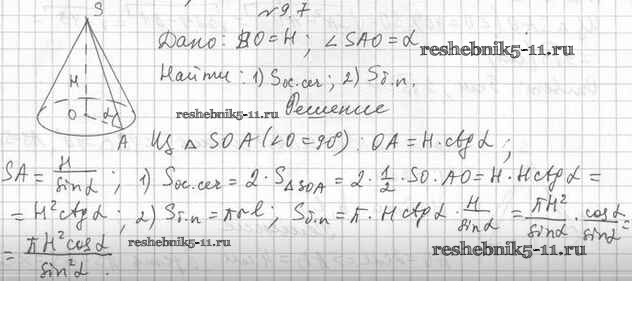 №9.7
S
Дано: SO=H; ∠SAO=α
reshebnik5-11.ru
Найти: 1) Sос.сеч; 2) Sб.п.
H
reshebnik5-11.ru
Решение
O α
A Из △SOA (∠O=90°): OA=H·ctgα;
SA = H/sinα; 1) Sос.сеч = 2·S△SOA = 2·1/2·SO·AO = H·Hctgα =
= H²ctgα; 2) Sб.п = πrl; Sб.п = π·Hctgα·H/sinα = πH²/sinα·cosα/sinα =
= πH²cosα/sin²α.
reshebnik5-11.ru
reshebnik5-11.ru